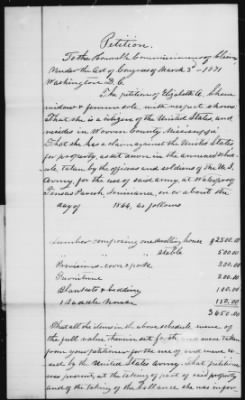 Petition.
To the Honorable Commissioners of Claims,
Under the Act of Congress of March 3d 1871
Washington D.C.
The petition of Elizabeth A.
widow & femme sole, with respect shows
That she is a citizen of the United States, and
resides in Warren County Mississippi
That she has a claim against the United States
for property, as set down in the annexed sche-
dule, taken by the officers and soldiers of the U.S.
Army, for the use of said army, at
Tensas Parish, Louisiana, on or about the
day of 1864, as follows
Lumber composing one dwelling house $2500.00
" " " stable 500.00
Provisions, corn & pork 200.00
Furniture 200.00
Blankets & bedding 100.00
1 Saddle 150.00
3650.00
That all the items in the above schedule were of
the full value therein set forth and were taken
from your petitioner for the use of and were u-
sed by the United States Army, that petition-
er was present, at the taking of part of said property
and of the taking of the balance she was infor-